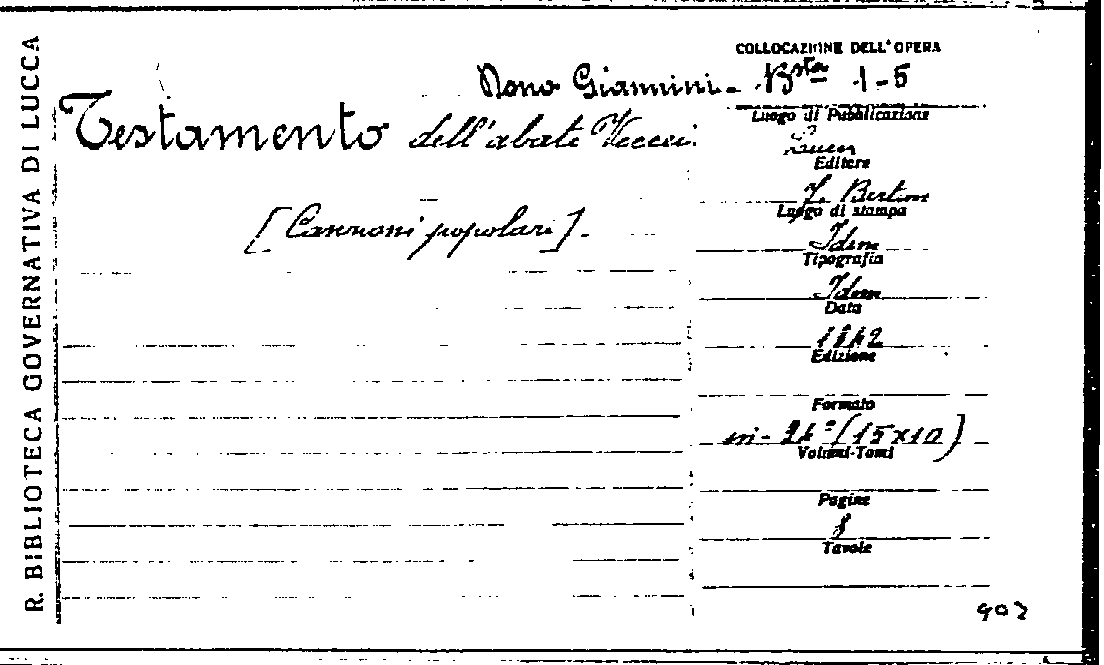 R. BIBLIOTECA GOVERNATIVA DI LUCCA
COLLOCAZIONE DELL'OPERA
Dono Giannini - Bsta 1-5
Testamento dell'abate Veccei.
[Canzoni popolari].
Luogo di Pubblicazione
Lucca
Editore
F. Bertini
Luogo di stampa
Idem
Tipografia
Idem
Data
1842
Edizione
Formato
in-24° (15x10)
Volumi-Tomi
Pagine
8
Tavole
902